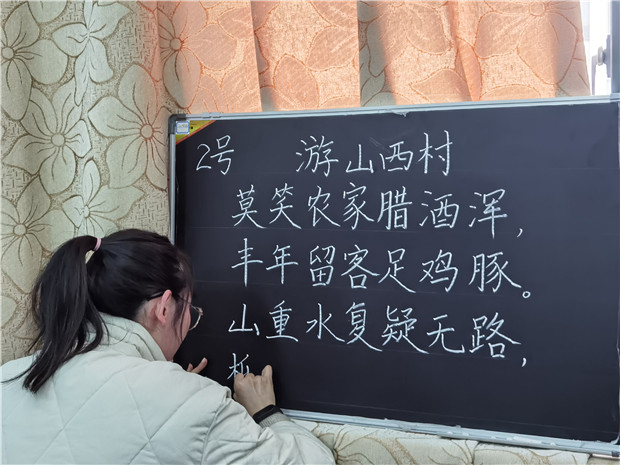 2号 游山西村
莫笑农家腊酒浑，
丰年留客足鸡豚。
山重水复疑无路，